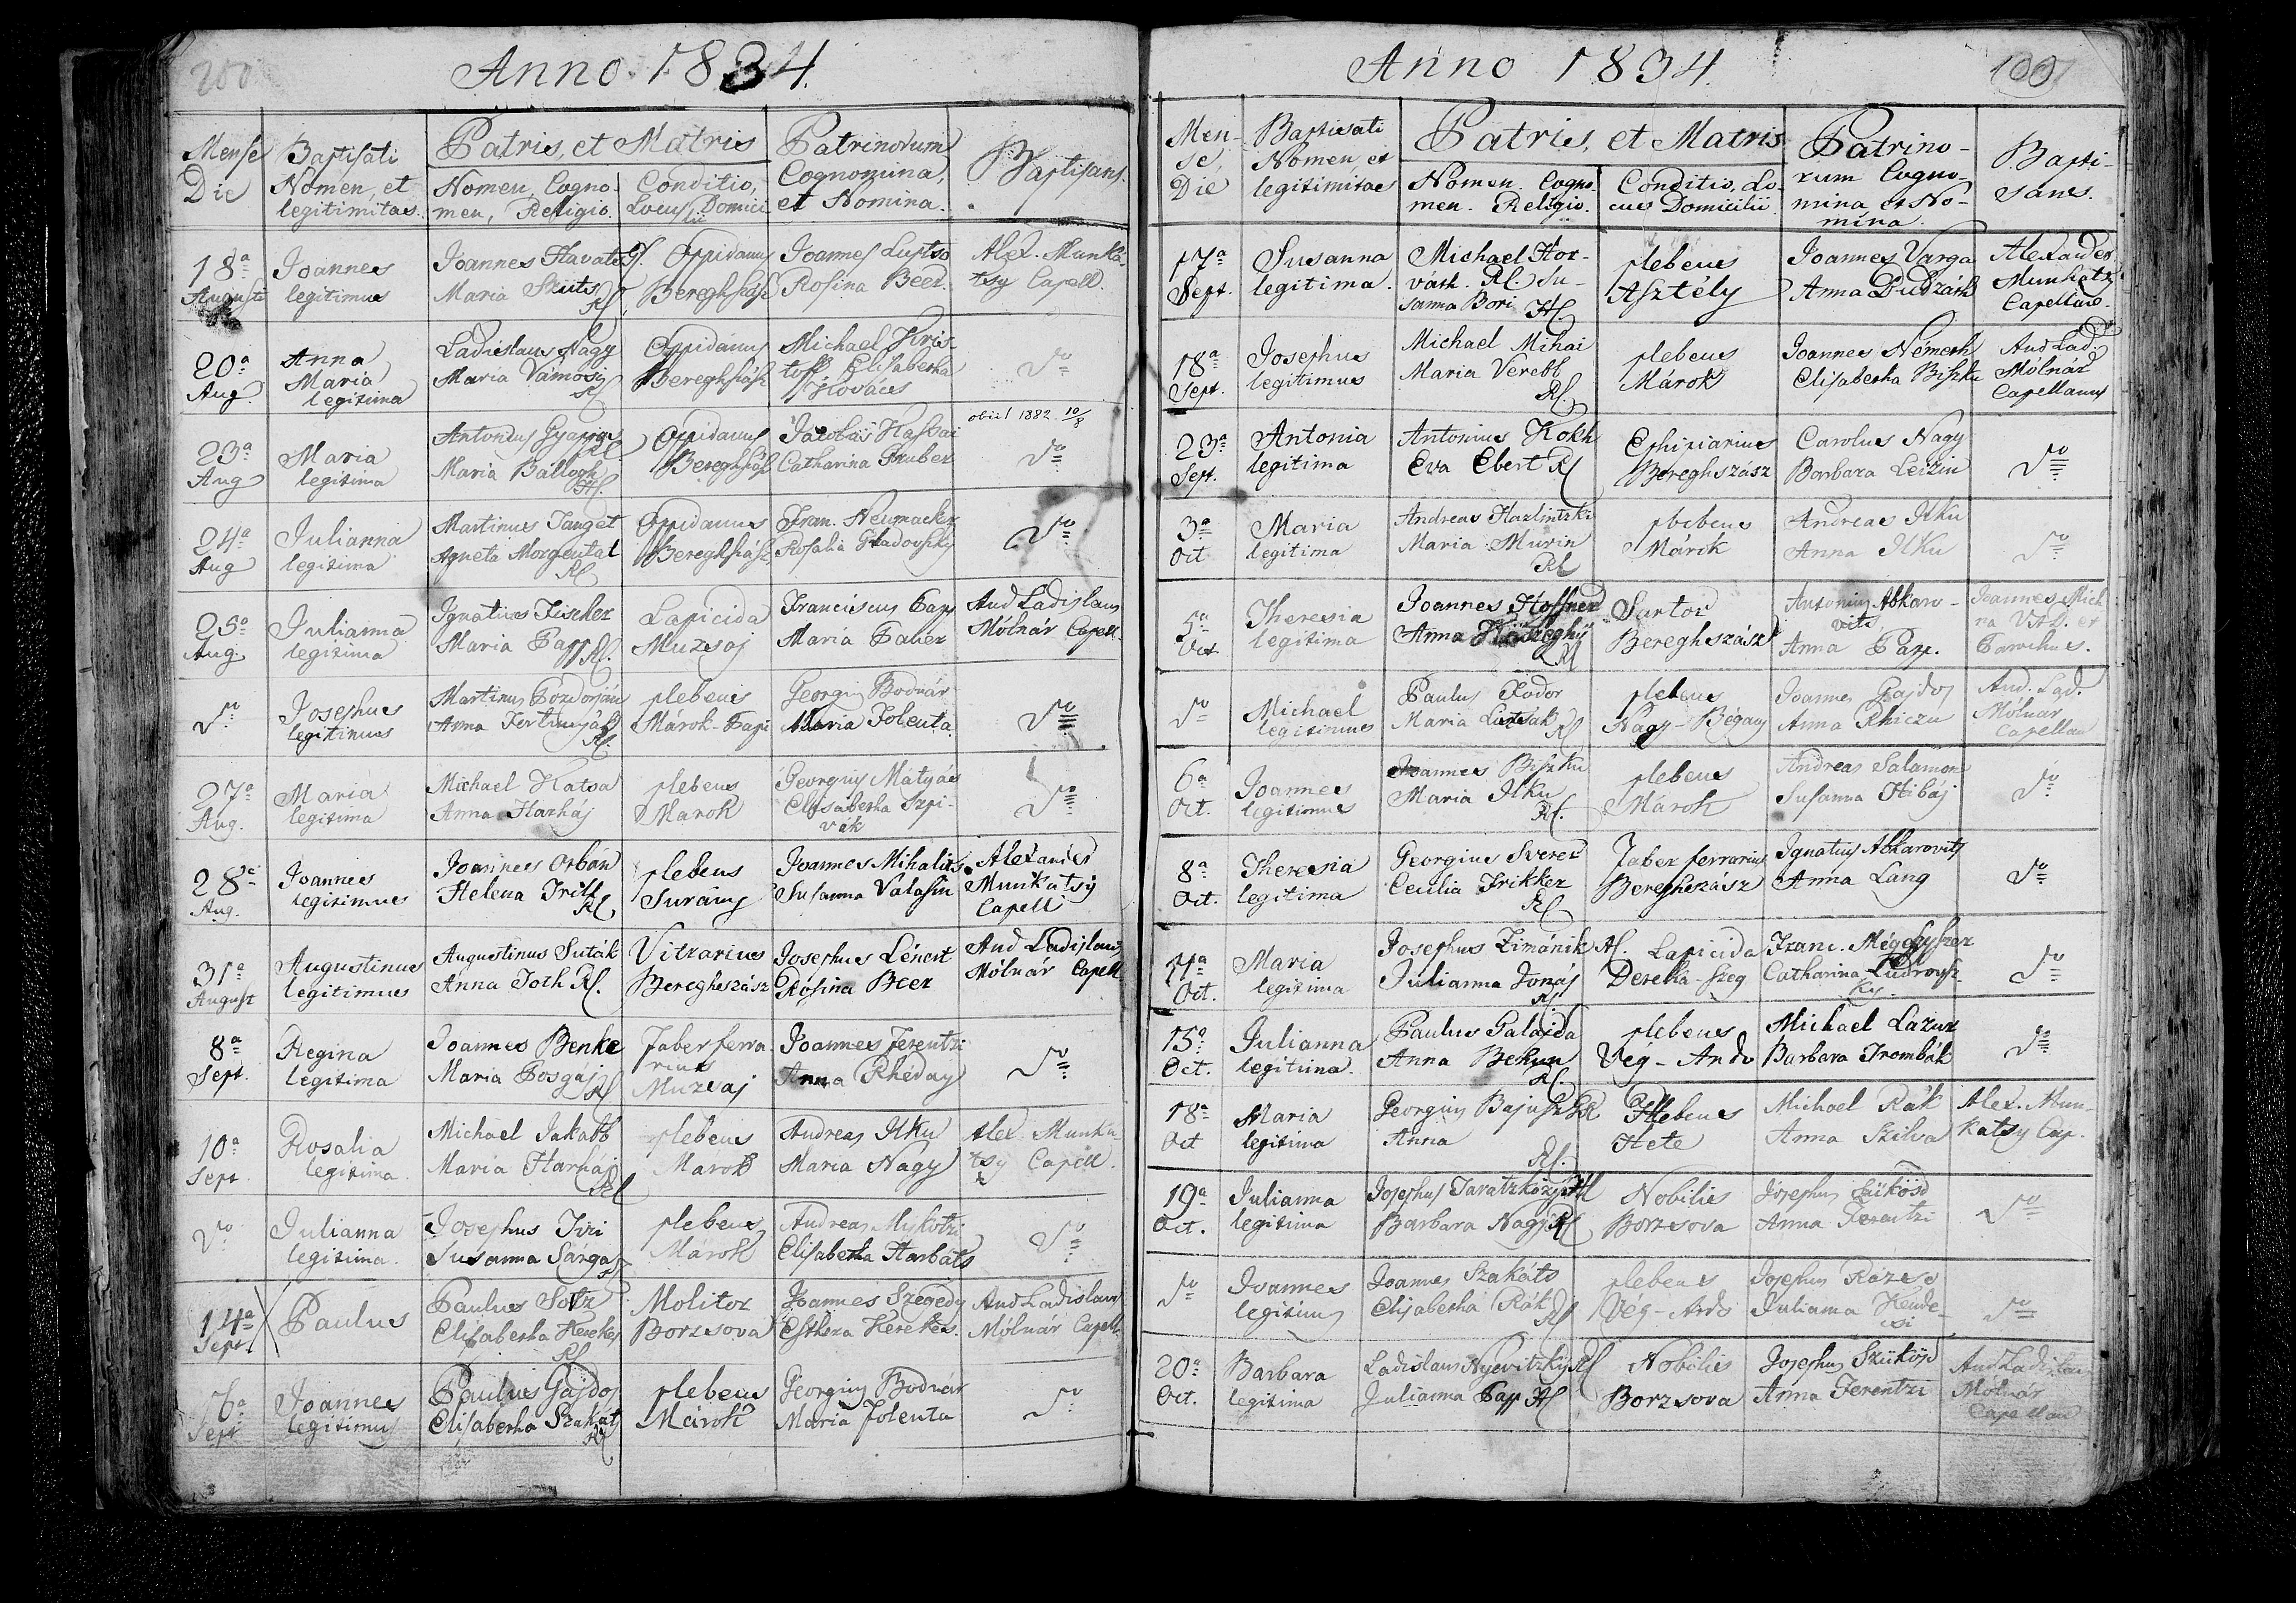 200
Anno 1834.
Mense Die
Baptisati Nomen, et legitimitas.
Patris, et Matris
Nomen, Cogno-
men, Religio.
Conditio,
Locus Domici
Patrinorum
Cognomina,
et Nomina.
Baptisans.
18a Augusti
Joannes legitimus
Joannes
Maria Szüts RC
Oppidanus Bereghszász
Joannes Luptso
Rosina Beer.
Alex. Munka-
tsy Capell.
20a Aug
Anna Maria legitima
Ladislaus Nagy
Maria Vámosy RC
Oppidanus Bereghszász
Michael Kris-
toff Elisabetha
Kovács
Do
23a Aug
Maria legitima
Antonius
Maria Ballogh HC.
Oppidanus Bereghszász
Jacobus Kassai
Catharina Gruber
obiit 1882 10/8
Do
24a Aug
Julianna legitima
Martinus Tanget
Agneta Morgental RC
Oppidanus Bereghszász
Fran. Neumacher
Rosalia Gladovszky
Do
25a Aug.
Julianna legitima
Ignatius Fischer
Maria Papp RC.
Lapicida Muzsaj
Franciscus Papp
Maria Pauer
And Ladislaus
Mólnár Capell.
Do
Josephus legitimus
Martinus Pozdorján
Anna RC.
plebeus Márok-Papi
Georgius Bodnár
Maria Folenta
Do
27a Aug.
Maria legitima
Michael Katsa
Anna Harháj
plebeus Marok
Georgius Mátyás
Elisabetha Szpi-
vák
Do
28a Aug.
Joannes legitimus
Joannes Orbán
Helena Trill RC
plebeus Surány
Joannes Mihalits
Susanna Valasin
Alexander
Munkatsy
Capell
31a August
Augustinus legitimus
Augustinus Suták
Anna Toth RC.
Vitrarius Bereghszász
Josephus Lénert
Rosina Beer
And Ladislaus
Mólnár Capell
8a Sept.
Regina legitima
Joannes Benke
Maria Posgaj RC
Faber ferra
rius
Muzsaj
Joannes Ferentzi
Anna Rhéday
Do
10a Sept
Rosalia legitima.
Michael Jakabb
Maria Harháj RC
plebeus Marok
Andreas Ilku
Maria Nagy
Alex. Munka
tsy Capell.
Do
Julianna legitima.
Josephus Ivi
Susanna Sárga
plebeus Márok
Andreas Mikotzi
Elisabetha Harbáts
Do
14a Sept.
Paulus
Paulus Sotz
Elisabetha Kerekes RC
Molitor Borzsova
Joannes Szegedy
Esthera Kerekes.
And Ladislaus
Mólnár Capell.
16a Sept
Joannes legitimus
Paulus Gajdos
Elisabetha Szakáts RC
plebeus Márok
Georgius Bodnár
Maria Folenta
Do
Anno 1834.
100
Men-
se
Die
Baptisati
Nomen et
legitimitas
Patris, et Matris
Nomen. Cogno.
men. Religio.
Conditio, Lo-
cus Domicilii.
Patrino-
rum Cogno-
mina et No-
mina.
Bapti-
sans.
17a Sept.
Susanna legitima.
Michael Hor-
váth. RC. Su-
sanna Bori HC.
plebeus Asztély
Joannes Varga
Anna Dudzásh
Alexander
Munkátsy
Capellane.
18a Sept.
Josephus legitimus
Michael Mihai
Maria Verebb RC.
plebeus Márok
Joannes Németh
Elisabetha Biszku
And Lad.
Mólnár
Capellanus
23a Sept.
Antonia legitima
Antonius Kokh
Eva Ebert RC
Ephipiarius Bereghszász
Carolus Nagy
Barbara Leizin
Do
3a Oct
Maria legitima
Andreas Hazlintzki
Maria Murin RC
plebeus Márok
Andreas Ilku
Anna Ilku
Do
5a Oct
Theresia legitima
Joannes Hoffner
Anna RC
Sartor Bereghszász
Antonius Abkaro-
vits
Anna Papp.
Joannes Mich
na VAD. et
Parochus.
Do
Michael legitimus
Paulus Fodor
Maria Lutsak RC
plebeus Nagy-Bégany
Joannes Gajdos
Anna Rhiczu
And. Lad.
Mólnar
Capellan
6a Oct.
Joannes legitimus
Joannes Biszku
Maria Ilku RC.
plebeus Márok
Andreas Salamon
Susanna Hibáj
Do
8a Oct.
Theresia legitima
Georgius Sverer
Cecilia Frikker RC
Faber ferrarius
Bereghszász
Ignatius Abkarovits
Anna Lang
Do
11a Oct.
Maria legitima
Josephus Zimánik RC.
Julianna Jonás RC
Lapicida
Dereka-szeg
Franc.
Catharina Ludrovsz-
ky.
Do
15a Oct.
Julianna legitima.
Paulus Galajda
Anna Behun RC.
plebeus Vég-Ardo
Michael Lazur
Barbara Trombák
Do
18a Oct
Maria legitima
Georgius Bajusz GR
Anna RC.
Plebeus Hete
Michael Rák
Anna Szilva
Alex. Mun-
katsy Cap.
19a Oct.
Julianna legitima
Josephus Taratzközy HC
Barbara Nagy RC
Nobilis Borzsova
Josephus Sükösd
Anna Ferentzi
Do
Do
Joannes legitimus
Joannes Szakáts
Elisabetha Rák RC
plebeus Vég-Ardo
Josephus Rozso
Julianna Kende-
esi
Do
20a Oct.
Barbara legitima
Ladislaus Nyevitzky RC
Julianna Papp HC
Nobilis Borzsova
Josephus Szükösd
Anna Ferentzi
And Ladislau
Mólnár
Capellan